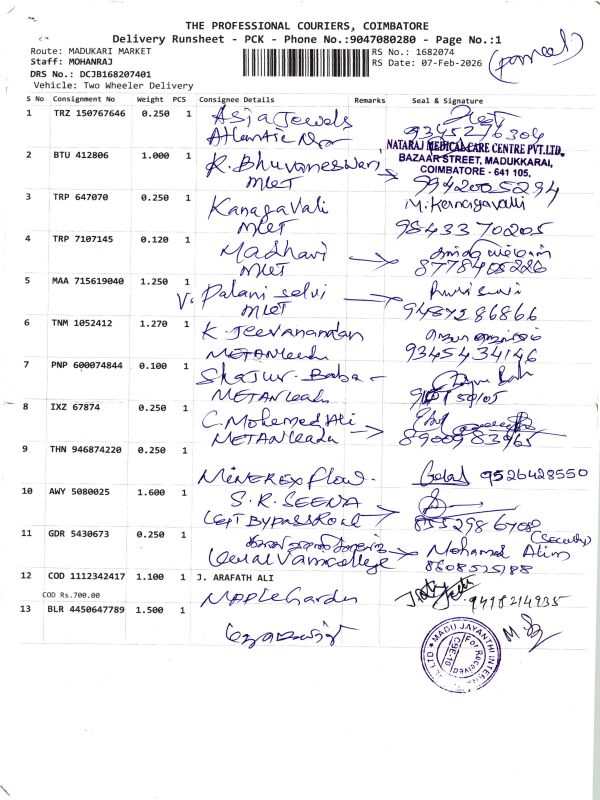 THE PROFESSIONAL COURIERS, COIMBATORE
Delivery Runsheet - PCK - Phone No.:9047080280 - Page No.:1
(parcel)
Route: MADUKARI MARKET
RS No.: 1682074
Staff: MOHANRAJ
RS Date: 07-Feb-2026
DRS No.: DCJB168207401
Vehicle: Two Wheeler Delivery
S No Consignment No Weight PCS Consignee Details Remarks Seal & Signature
1 TRZ 150767646 0.250 1 Asia Jewels
9345276304
NATARAJ MEDICAL CARE CENTRE PVT.LTD.
BAZAAR STREET, MADUKKARAI,
COIMBATORE - 641 105.
2 BTU 412806 1.000 1 K. Bhuvaneswari
MLET
9942005294
3 TRP 647070 0.250 1 Kanagavali
MLET
9843370205
4 TRP 7107145 0.120 1 Madhavi
MLET
8778405226
5 MAA 715619040 1.250 1 V. Palani selvi
MLET
9487286866
6 TNM 1052412 1.270 1 K. Jeevanandan
9345434146
7 PNP 600074844 0.100 1
8 IXZ 67874 0.250 1 C. Mohemed Ali
8900983965
9 THN 946874220 0.250 1 Minerex flow.
9526428550
10 AWY 5080025 1.600 1 S.R. SEENA
LEFT BYPASS Road
11 GDR 5430673 0.250 1
(Security)
Mohamed Alim
12 COD 1112342417 1.100 1 J. ARAFATH ALI
COD Rs.700.00
Apple Garden
9498214935
13 BLR 4450647789 1.500 1
MADU JAYANTHI INTERN
For Received
CBE-10